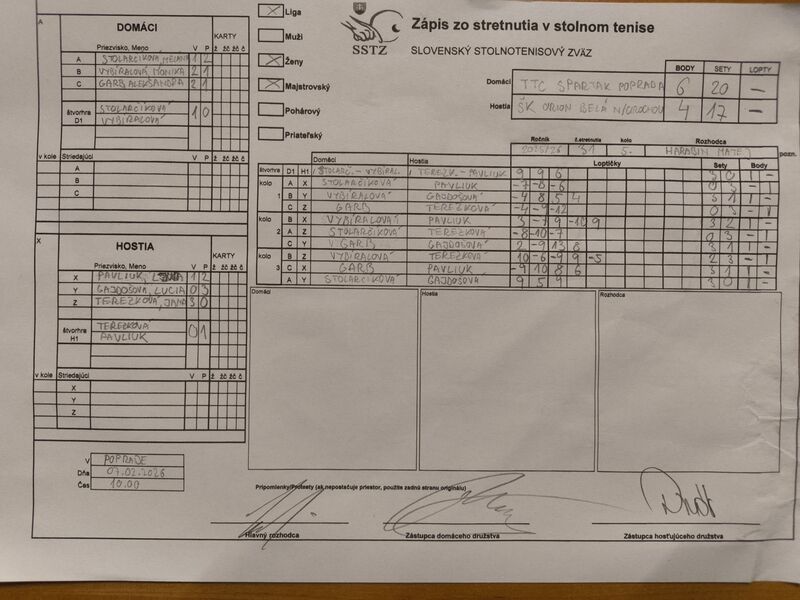 A
DOMÁCI
KARTY
Priezvisko, Meno V P ž žč žč č
A STOLARČÍKOVÁ, MELÁNIA 1 2
B VYBÍRALOVÁ, MONIKA 2 1
C GARB ALEKSANDRA 2 1
štvorhra D1 STOLARČÍKOVÁ 1 0
VYBÍRALOVÁ
v kole Striedajúci V P ž žč žč č
A
B
C
X
HOSTIA
KARTY
Priezvisko, Meno V P ž žč žč č
X PAVLIUK, 1 2
Y GAJDOŠOVÁ, LUCIA 0 3
Z TEREZKOVÁ, JANA 3 0
štvorhra H1 TEREZKOVÁ 0 1
PAVLIUK
v kole Striedajúci V P ž žč žč č
X
Y
Z
V POPRADE
Dňa 07.02.2026
Čas 10.00
Liga
Muži
Ženy
Majstrovský
Pohárový
Priateľský
SSTZ
Zápis zo stretnutia v stolnom tenise
SLOVENSKÝ STOLNOTENISOVÝ ZVÄZ
BODY SETY LOPTY
Domáci TTC SPARTAK POPRAD 6 20 –
Hostia ŠK ORION BELÁ N/CIROCHOU 4 17 –
Ročník č.stretnutia kolo Rozhodca
2025/26 31 5. HARABIN MATEJ pozn.
Domáci Hostia Loptičky Sety Body
štvorhra D1 H1 STOLARČ.-VYBÍRAL. TEREZK.-PAVLIUK 9 9 6 3 0 1 –
kolo 1 A X STOLARČÍKOVÁ PAVLIUK -7 -8 -6 0 3 – 1
B Y VYBÍRALOVÁ GAJDOŠOVÁ -4 8 5 4 3 1 1 –
C Z GARB TEREZKOVÁ -4 -9 -12 0 3 – 1
kolo 2 B X VYBÍRALOVÁ PAVLIUK 3 -7 9 -10 9 3 2 1 –
A Z STOLARČÍKOVÁ TEREZKOVÁ -8 -10 -7 0 3 – 1
C Y GARB GAJDOŠOVÁ 2 -9 13 8 3 1 1 –
kolo 3 B Z VYBÍRALOVÁ TEREZKOVÁ 10 -6 -9 9 -5 2 3 – 1
C X GARB PAVLIUK -9 10 8 6 3 1 1 –
A Y STOLARČÍKOVÁ GAJDOŠOVÁ 9 5 9 3 0 1 –
Domáci
Hostia
Rozhodca
Pripomienky/Protesty (ak nepostačuje priestor, použite zadnú stranu originálu)
Hlavný rozhodca
Zástupca domáceho družstva
Zástupca hosťujúceho družstva